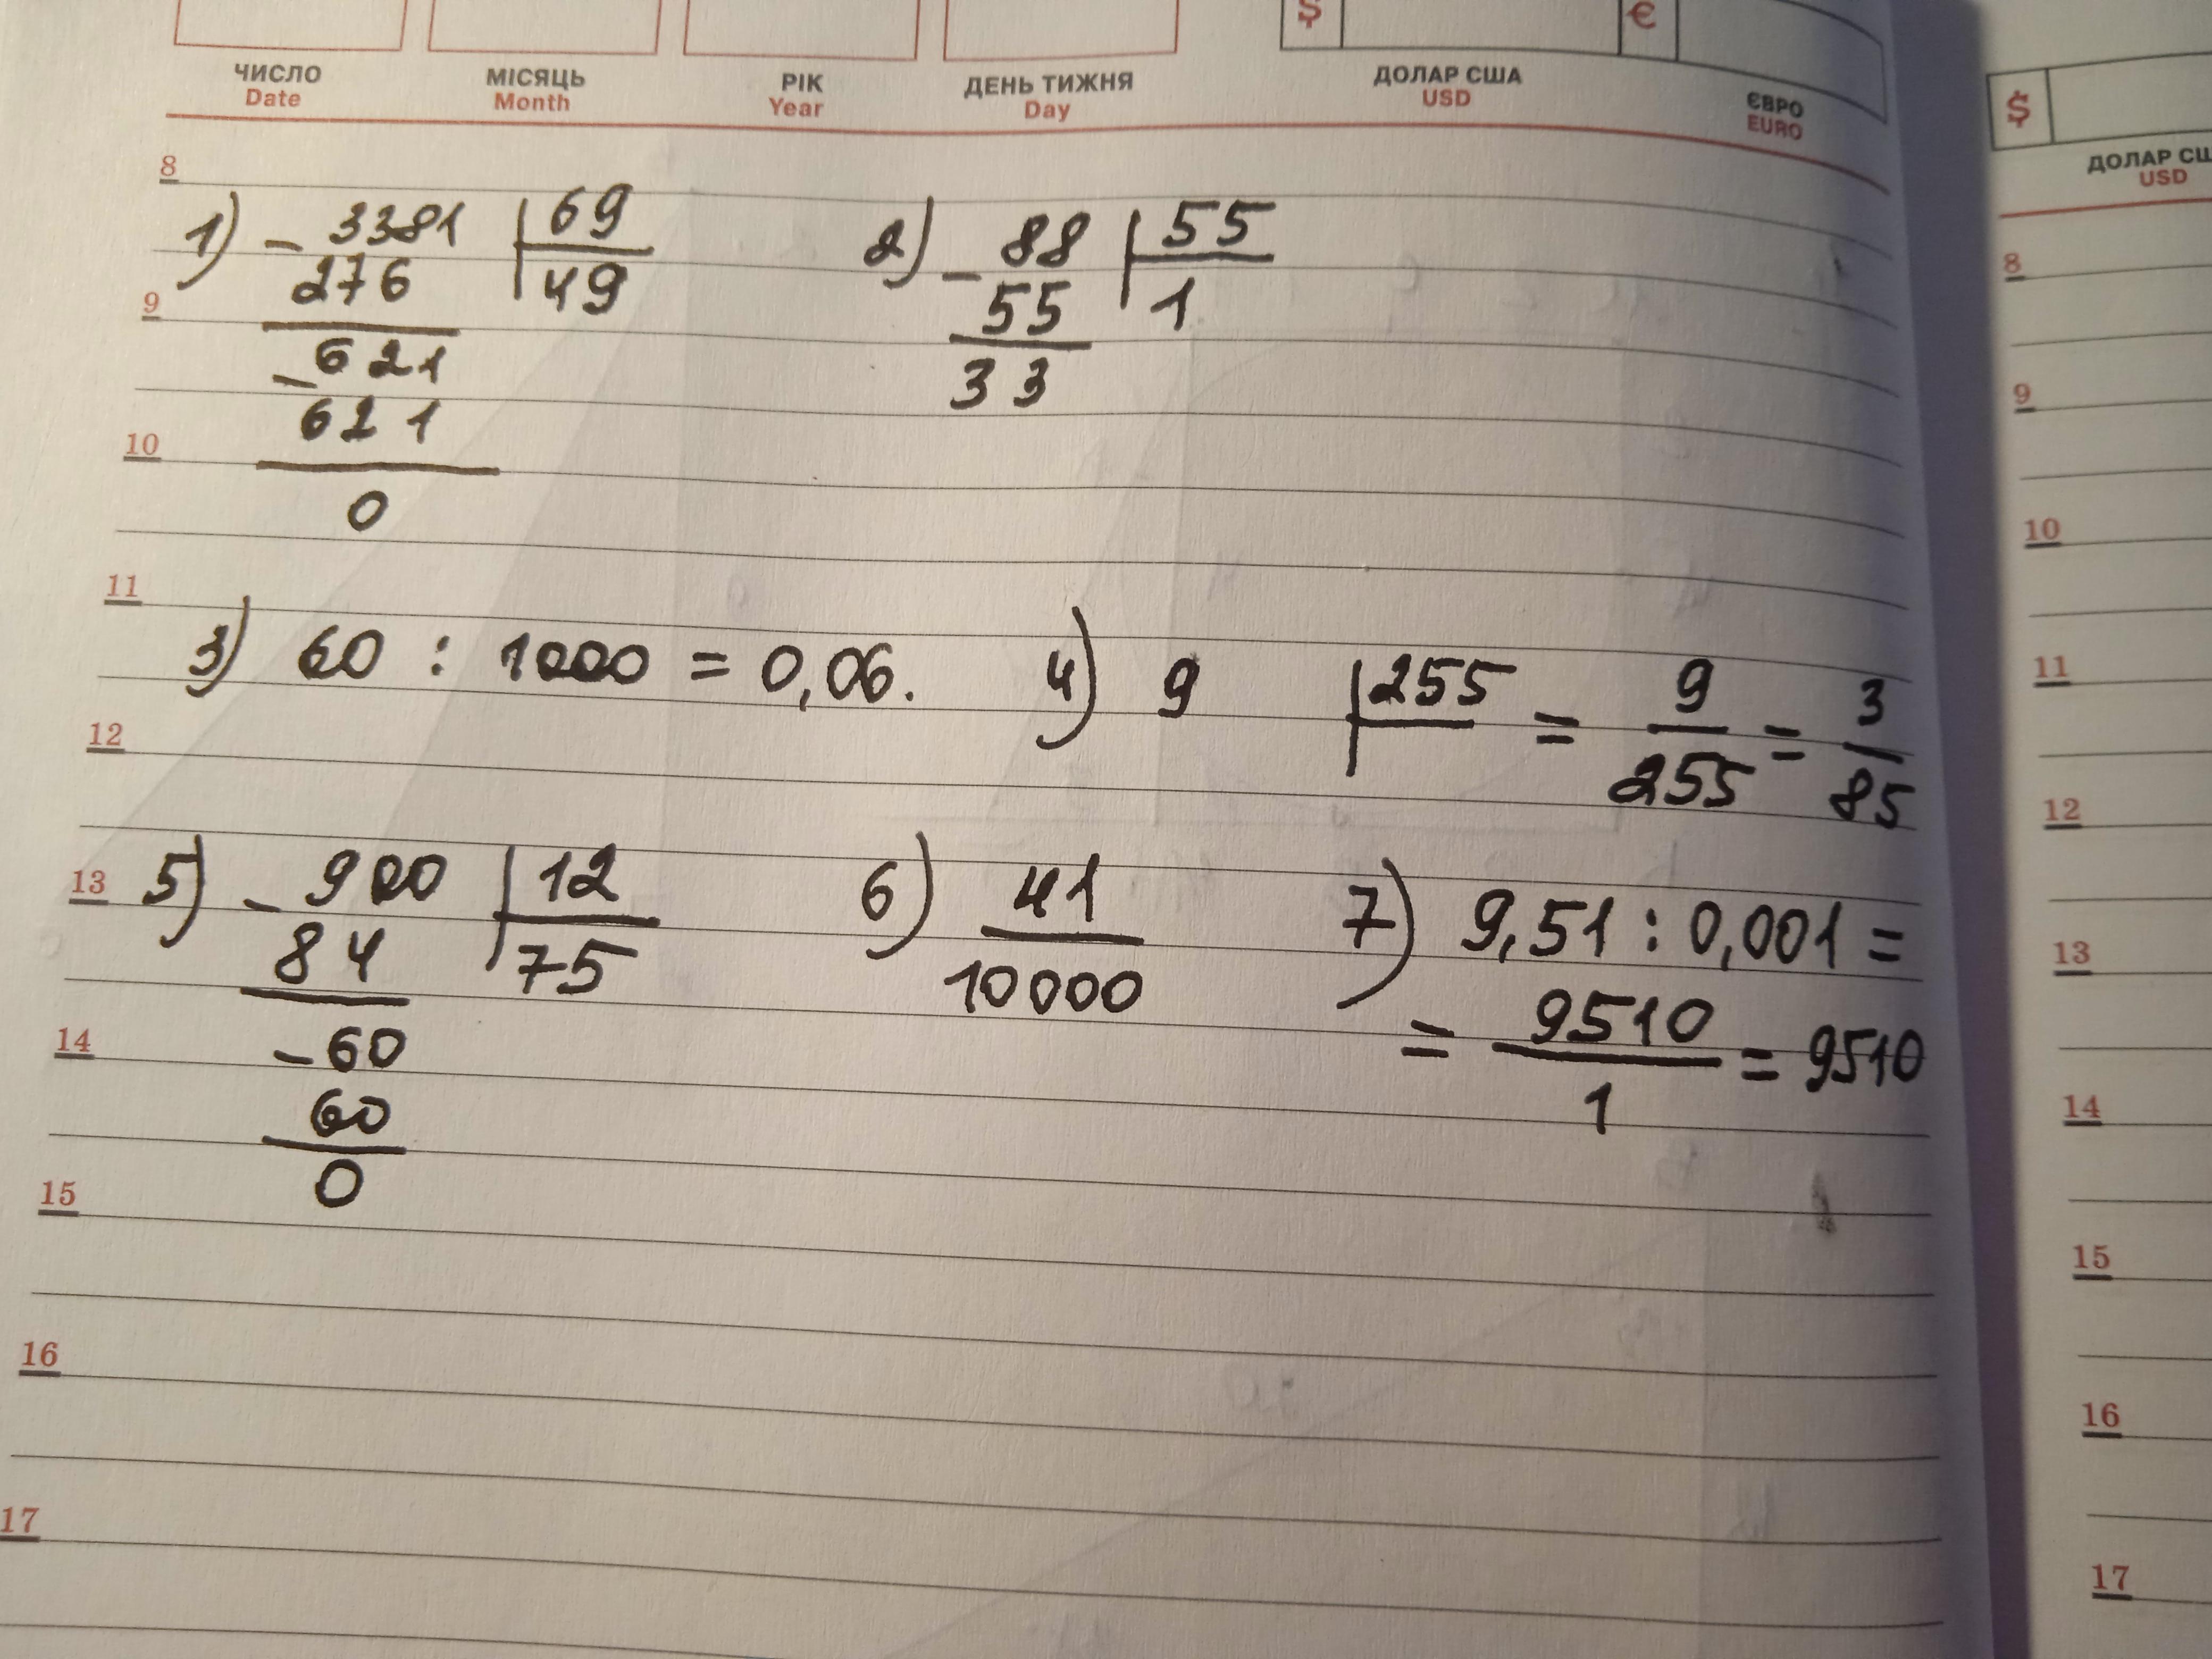 $ €
ЧИСЛО МІСЯЦЬ РІК ДЕНЬ ТИЖНЯ ДОЛАР США ЄВРО
Date Month Year Day USD EURO
8
1) - 3381 | 69
276 49
9
- 621
621
10
0
2) - 88 | 55
55 1
33
11
3) 60 : 1000 = 0,06.
4) 9 | 255 = 9/255 = 3/85
12
13
5) - 900 | 12
84 75
14
- 60
60
0
6) 41/10000
7) 9,51 : 0,001 =
= 9510/1 = 9510
15
16
17
$
ДОЛАР
USD
8
9
10
11
12
13
14
15
16
17